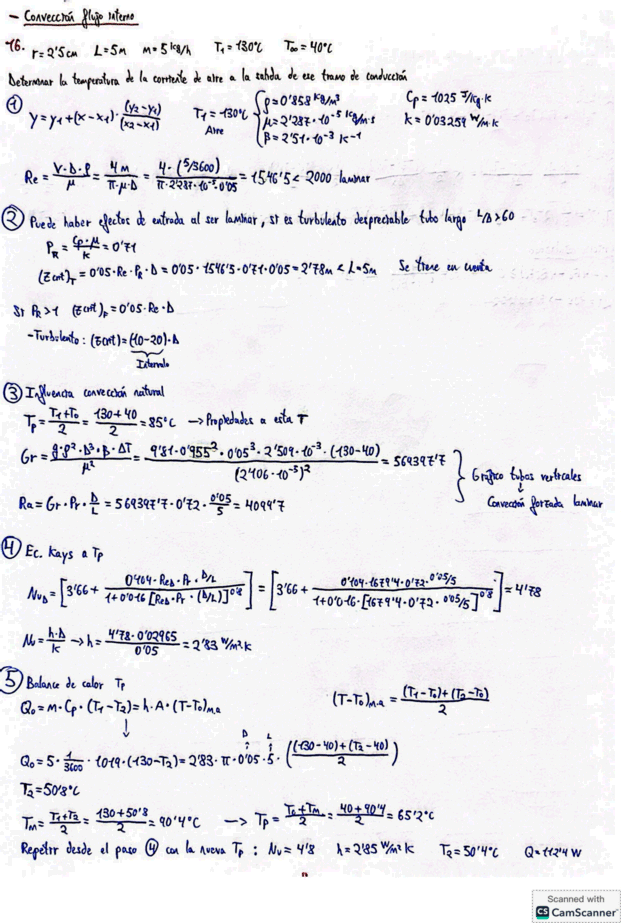 - Convección flujo interno
16. r=2'5cm L=5m m=5kg/h T₁=130°C T∞=40°C
Determinar la temperatura de la corriente de aire a la salida de ese tramo de conducción
① y=y₁+(x-x₁)·(y₂-y₁)/(x₂-x₁) T₁=130°C Aire { ρ=0'858 kg/m³ Cp=1025 J/kg·K
μ=2'287·10⁻⁵ kg/m·s k=0'03259 W/m·K
β=2'51·10⁻³ K⁻¹
Re = V·D·ρ/μ = 4m/π·μ·D = 4·(5/3600)/π·2'287·10⁻⁵·0'05 = 1546'5 < 2000 laminar
② Puede haber efectos de entrada al ser laminar, si es turbulento despreciable tubo largo L/D>60
PR = Cp·μ/k = 0'71
(Zcrit)T = 0'05·Re·PR·D = 0'05·1546'5·0'71·0'05 = 2'78m < L=5m Se tiene en cuenta
Si PR>1 (Zcrit)F = 0'05·Re·D
-Turbulento: (Zcrit) = (10-20)·D
Intervalo
③ Influencia convección natural
Tp = T₁+T₀/2 = 130+40/2 = 85°C → Propiedades a esta T
Gr = g·ρ²·D³·β·ΔT/μ² = 9'81·0'955²·0'05³·2'509·10⁻³·(130-40)/(2'106·10⁻⁵)² = 569397'7
Gráfico tubos verticales
↓
Convección forzada laminar
Ra = Gr·Pr·D/L = 569397'7·0'72·0'05/5 = 4099'7
④ Ec. Kays a Tp
NuD = [3'66 + 0'104·ReD·Pr·D/L / 1+0'016[ReD·Pr·(D/L)]^0'8] = [3'66 + 0'104·1679'4·0'72·0'05/5 / 1+0'016·[1679'4·0'72·0'05/5]^0'8] = 4'78
Nu = h·D/k → h = 4'78·0'02965/0'05 = 2'83 W/m²·K
⑤ Balance de calor Tp
Q₀ = m·Cp·(T₁-T₂) = h·A·(T-T₀)m.a (T-T₀)m.a = (T₁-T₀)+(T₂-T₀)/2
↓
D L
Q₀ = 5·1/3600·1019·(130-T₂) = 2'83·π·0'05·5·((130-40)+(T₂-40)/2)
T₂ = 50'8°C
TM = T₁+T₂/2 = 130+50'8/2 = 90'4°C → Tp = T₀+TM/2 = 40+90'4/2 = 65'2°C
Repetir desde el paso ④ con la nueva Tp: Nu=4'8 h=2'85 W/m²K T₂=50'4°C Q=112'4 W
Scanned with
CS CamScanner